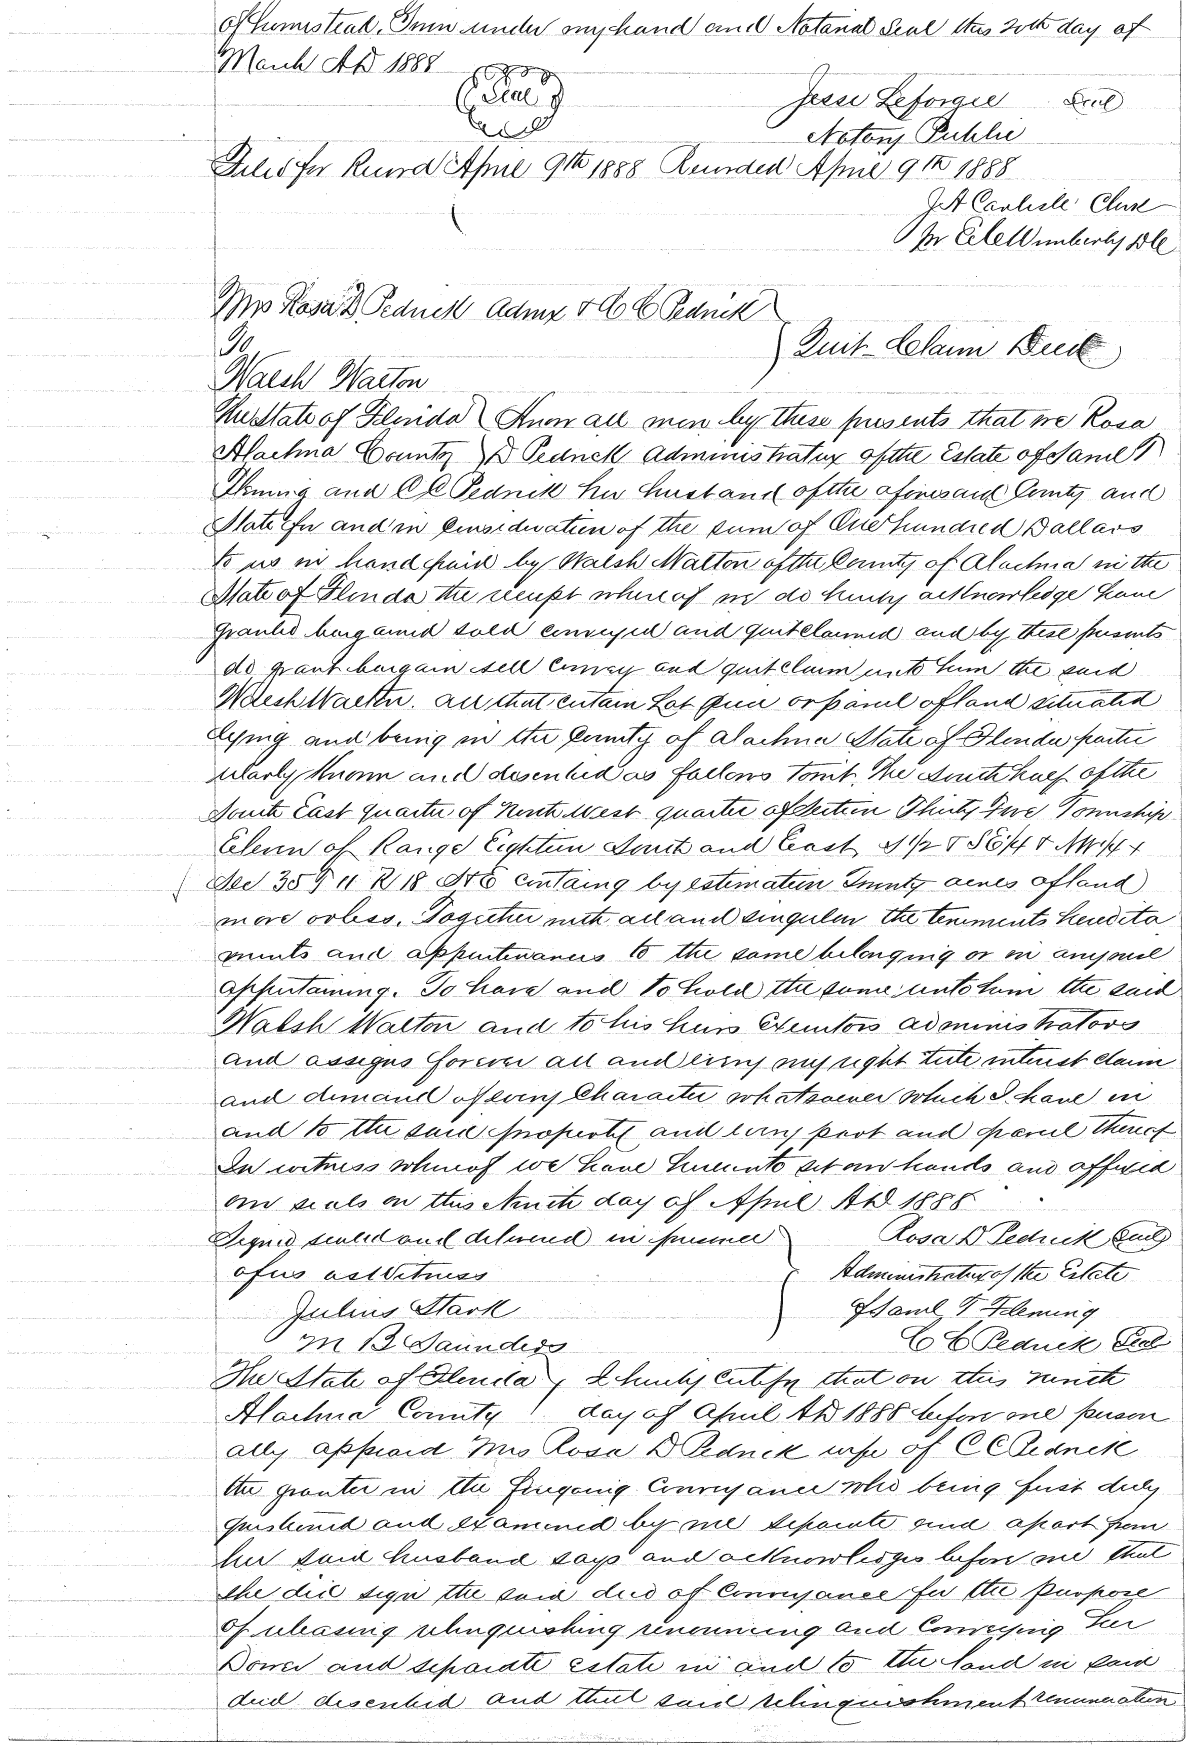 of homestead. Given under my hand and Notarial Seal this 20th day of
March AD 1888
Seal
Jesse Leforgee Seal
Notory Public
Filed for Record April 9th 1888 Recorded April 9th 1888
J A Carlisle Clerk
Pr Wimberly DC
Mrs Rosa D Pednick Admx & C C Pednick
To
Quit-Claim Deed
Walsh Walton
The State of Florida Know all men by these presents that we Rosa
Alachua County D Pednick Administratrix of the Estate of Saml T
Fleming and C C Pednick her husband of the aforesaid County and
State for and in Consideration of the sum of One hundred Dollars
to us in hand paid by Walsh Walton of the County of Alachua in the
State of Florida the receipt whereof we do hereby acknowledge have
granted bargained sold conveyed and quitclaimed and by these presents
do grant bargain sell convey and quitclaim unto him the said
Walsh Walton. all that certain Lot piece or parcel of land situated
lying and being in the County of Alachua State of Florida partic
ularly known and described as follows towit. The South half of the
South East quarter of North West quarter of Section Thirty Five Township
Eleven of Range Eighteen South and East S 1/2 & SE 1/4 & NW 1/4 &
Sec 35 T 11 R 18 S & E containg by estimation Twenty acres of land
more or less. Together with all and singular the tenements heredita
ments and appurtenances to the same belonging or in anywise
appertaining. To have and to hold the same unto him the said
Walsh Walton and to his heirs Executors administrators
and assigns forever all and every my right title interest claim
and demand of every Character whatsoever which I have in
and to the said property and every part and parcel thereof
In witness whereof we have hereunto set our hands and affixed
our seals on this Ninth day of April AD 1888
Signed sealed and delivered in presence Rosa D Pednick Seal
of us as Witness Administratrix of the Estate
Julius Stark of Saml T Fleming
M B Saunders C C Pednick Seal
The State of Florida I hereby Certify that on this ninth
Alachua County day of April AD 1888 before me person
ally appeard Mrs Rosa D Pednick wife of C C Pednick
the grantor in the foregoing Conveyance who being first duly
questioned and examined by me separate and apart from
her said husband says and acknowledges before me that
she did sign the said deed of Conveyance for the purpose
of releasing relinquishing renouncing and Conveying her
Dower and separate estate in and to the land in said
deed described and that said relinquishment renunciation